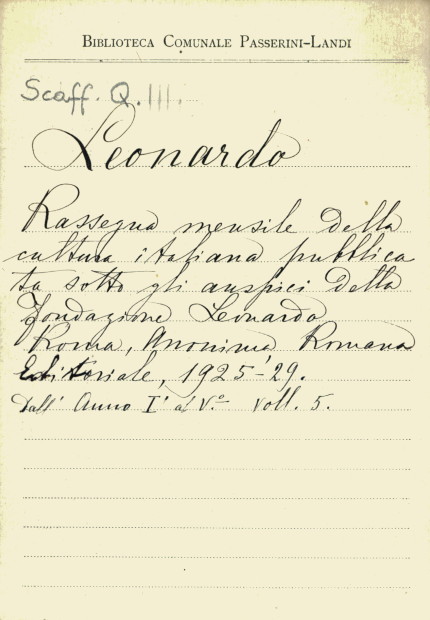 BIBLIOTECA COMUNALE PASSERINI-LANDI
Scaff. Q. III.
Leonardo
Rassegna mensile della
cultura italiana pubblica
ta sotto gli auspici della
Fondazione Leonardo
Roma, Anonima Romana
Editoriale, 1925-29.
Dall' Anno I° al V.° voll. 5.